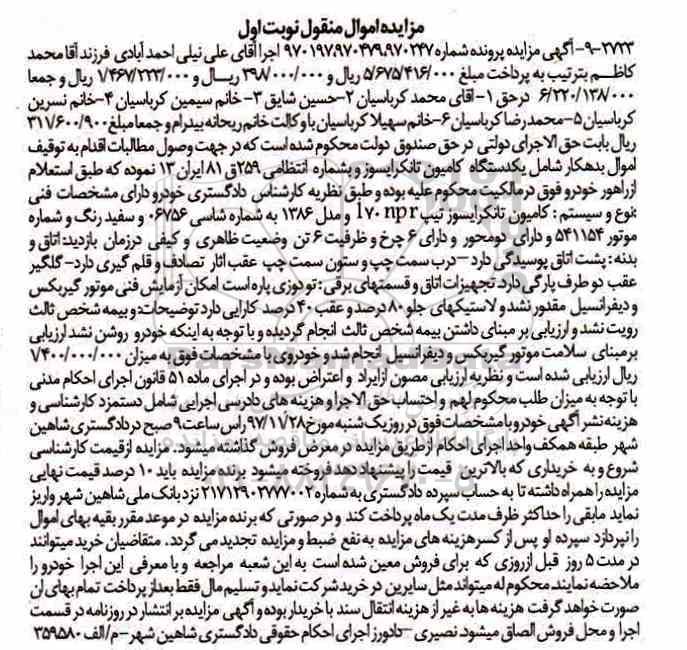 مزایده اموال منقول نوبت اول
۲۷۲۳-۹- آگهی مزایده پرونده شماره ۹۷۰۱۹۷،۹۷۰۴۷۹،۹۷۰۲۴۷ اجرا آقای علی نیلی احمد آبادی فرزند آقا محمد
کاظم بترتیب به پرداخت مبلغ ۵/۶۷۵/۴۱۶/۰۰۰ ریال و ۳۹۸/۰۰۰/۰۰۰ ریال و ۱/۴۶۷/۲۲۳/۰۰۰ ریال و جمعا
۶/۲۲۰/۱۳۸/۰۰۰ در حق ۱- آقای محمد کرباسیان ۲- حسین شایق ۳- خانم سیمین کرباسیان ۴- خانم نسرین
کرباسیان ۵- محمد رضا کرباسیان ۶- خانم سهیلا کرباسیان با وکالت خانم ریحانه بیدرام و جمعا مبلغ ۳۱۱/۶۰۰/۹۰۰
ریال بابت حق الاجرای دولتی در حق صندوق دولت محکوم شده است که در جهت وصول مطالبات اقدام به توقیف
اموال بدهکار شامل یکدستگاه کامیون تانکر ایسوز و بشماره انتظامی ۲۵۹ق ۸۱ ایران ۱۳ نموده که طبق استعلام
از راهور خودرو فوق در مالکیت محکوم علیه بوده و طبق نظریه کارشناس دادگستری خودرو دارای مشخصات فنی
:نوع و سیستم : کامیون تانکر ایسوز تیپ npr ۷۰l و مدل ۱۳۸۶ به شماره شاسی ۰۶۷۵۶ و سفید رنگ و شماره
موتور ۵۴۱۱۵۴ و دارای دو محور و دارای ۶ چرخ و ظرفیت ۶ تن وضعیت ظاهری و کیفی در زمان بازدید: اتاق و
بدنه : پشت اتاق پوسیدگی دارد - درب سمت چپ و ستون سمت چپ عقب آثار تصادف و قلم گیری دارد - گلگیر
عقب دو طرف پارگی دارد. تجهیزات اتاق و قسمتهای برقی : تودوزی پاره است امکان آزمایش فنی موتور گیربکس
و دیفرانسیل مقدور نشد و لاستیکهای جلو ۸۰درصد و عقب ۴۰درصد کارایی دارد توضیحات: و بیمه شخص ثالث
رویت نشد و ارزیابی بر مبنای داشتن بیمه شخص ثالث انجام گردیده و با توجه به اینکه خودرو روشن نشد ارزیابی
بر مبنای سلامت موتور گیربکس و دیفرانسیل انجام شد و خودروی با مشخصات فوق به میزان ۱/۴۰۰/۰۰۰/۰۰۰
ریال ارزیابی شده است و نظریه ارزیابی مصون از ایراد و اعتراض بوده و در اجرای ماده ۵۱ قانون اجرای احکام مدنی
با توجه به میزان طلب محکوم لهم و احتساب حق الاجرا و هزینه های دادرسی اجرایی شامل دستمزد کارشناسی و
هزینه نشر آگهی خودرو با مشخصات فوق در روز یک شنبه مورخ ۹۷/۱۱/۲۸ راس ساعت ۹ صبح در دادگستری شاهین
شهر طبقه همکف واحد اجرای احکام از طریق مزایده در معرض فروش گذاشته میشود. مزایده از قیمت کارشناسی
شروع و به خریداری که بالاترین قیمت را پیشنهاد دهد فروخته میشود برنده مزایده باید ۱۰ درصد قیمت نهایی
مزایده را همراه داشته تا به حساب سپرده دادگستری به شماره ۲۱۷۱۲۹۰۲۷۷۰۰۲ نزد بانک ملی شاهین شهر واریز
نماید مابقی را حداکثر ظرف مدت یک ماه پرداخت کند و در صورتی که برنده مزایده در موعد مقرر بقیه بهای اموال
را نپردازد سپرده او پس از کسر هزینه های مزایده به نفع ضبط و مزایده تجدید می گردد . متقاضیان خرید میتوانند
در مدت ۵ روز قبل از روزی که برای فروش معین شده است به این شعبه مراجعه و با معرفی این اجرا خودرو را
ملاحضه نمایند. محکوم له میتواند مثل سایرین در خرید شرکت نماید و تسلیم مال فقط بعد از پرداخت تمام بهای آن
صورت خواهد گرفت هزینه ها به غیر از هزینه انتقال سند با خریدار بوده و آگهی مزایده بر انتشار در روزنامه در قسمت
اجرا و محل فروش الصاق میشود. نصیری - دادورز اجرای احکام حقوقی دادگستری شاهین شهر - م/الف ۳۵۹۵۸۰